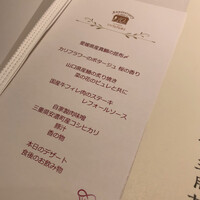 愛媛県産真鯛の昆布〆
カリフラワーのポタージュ 柚の香り
山口県産鰆の炙り焼き
菜の花のピュレと共に
国産牛フィレ肉のステーキ
レフォールソース
自家製肉味噌
三重県安濃町産コシヒカリ
緑汁
香の物
本日のデザート
食後のお飲み物